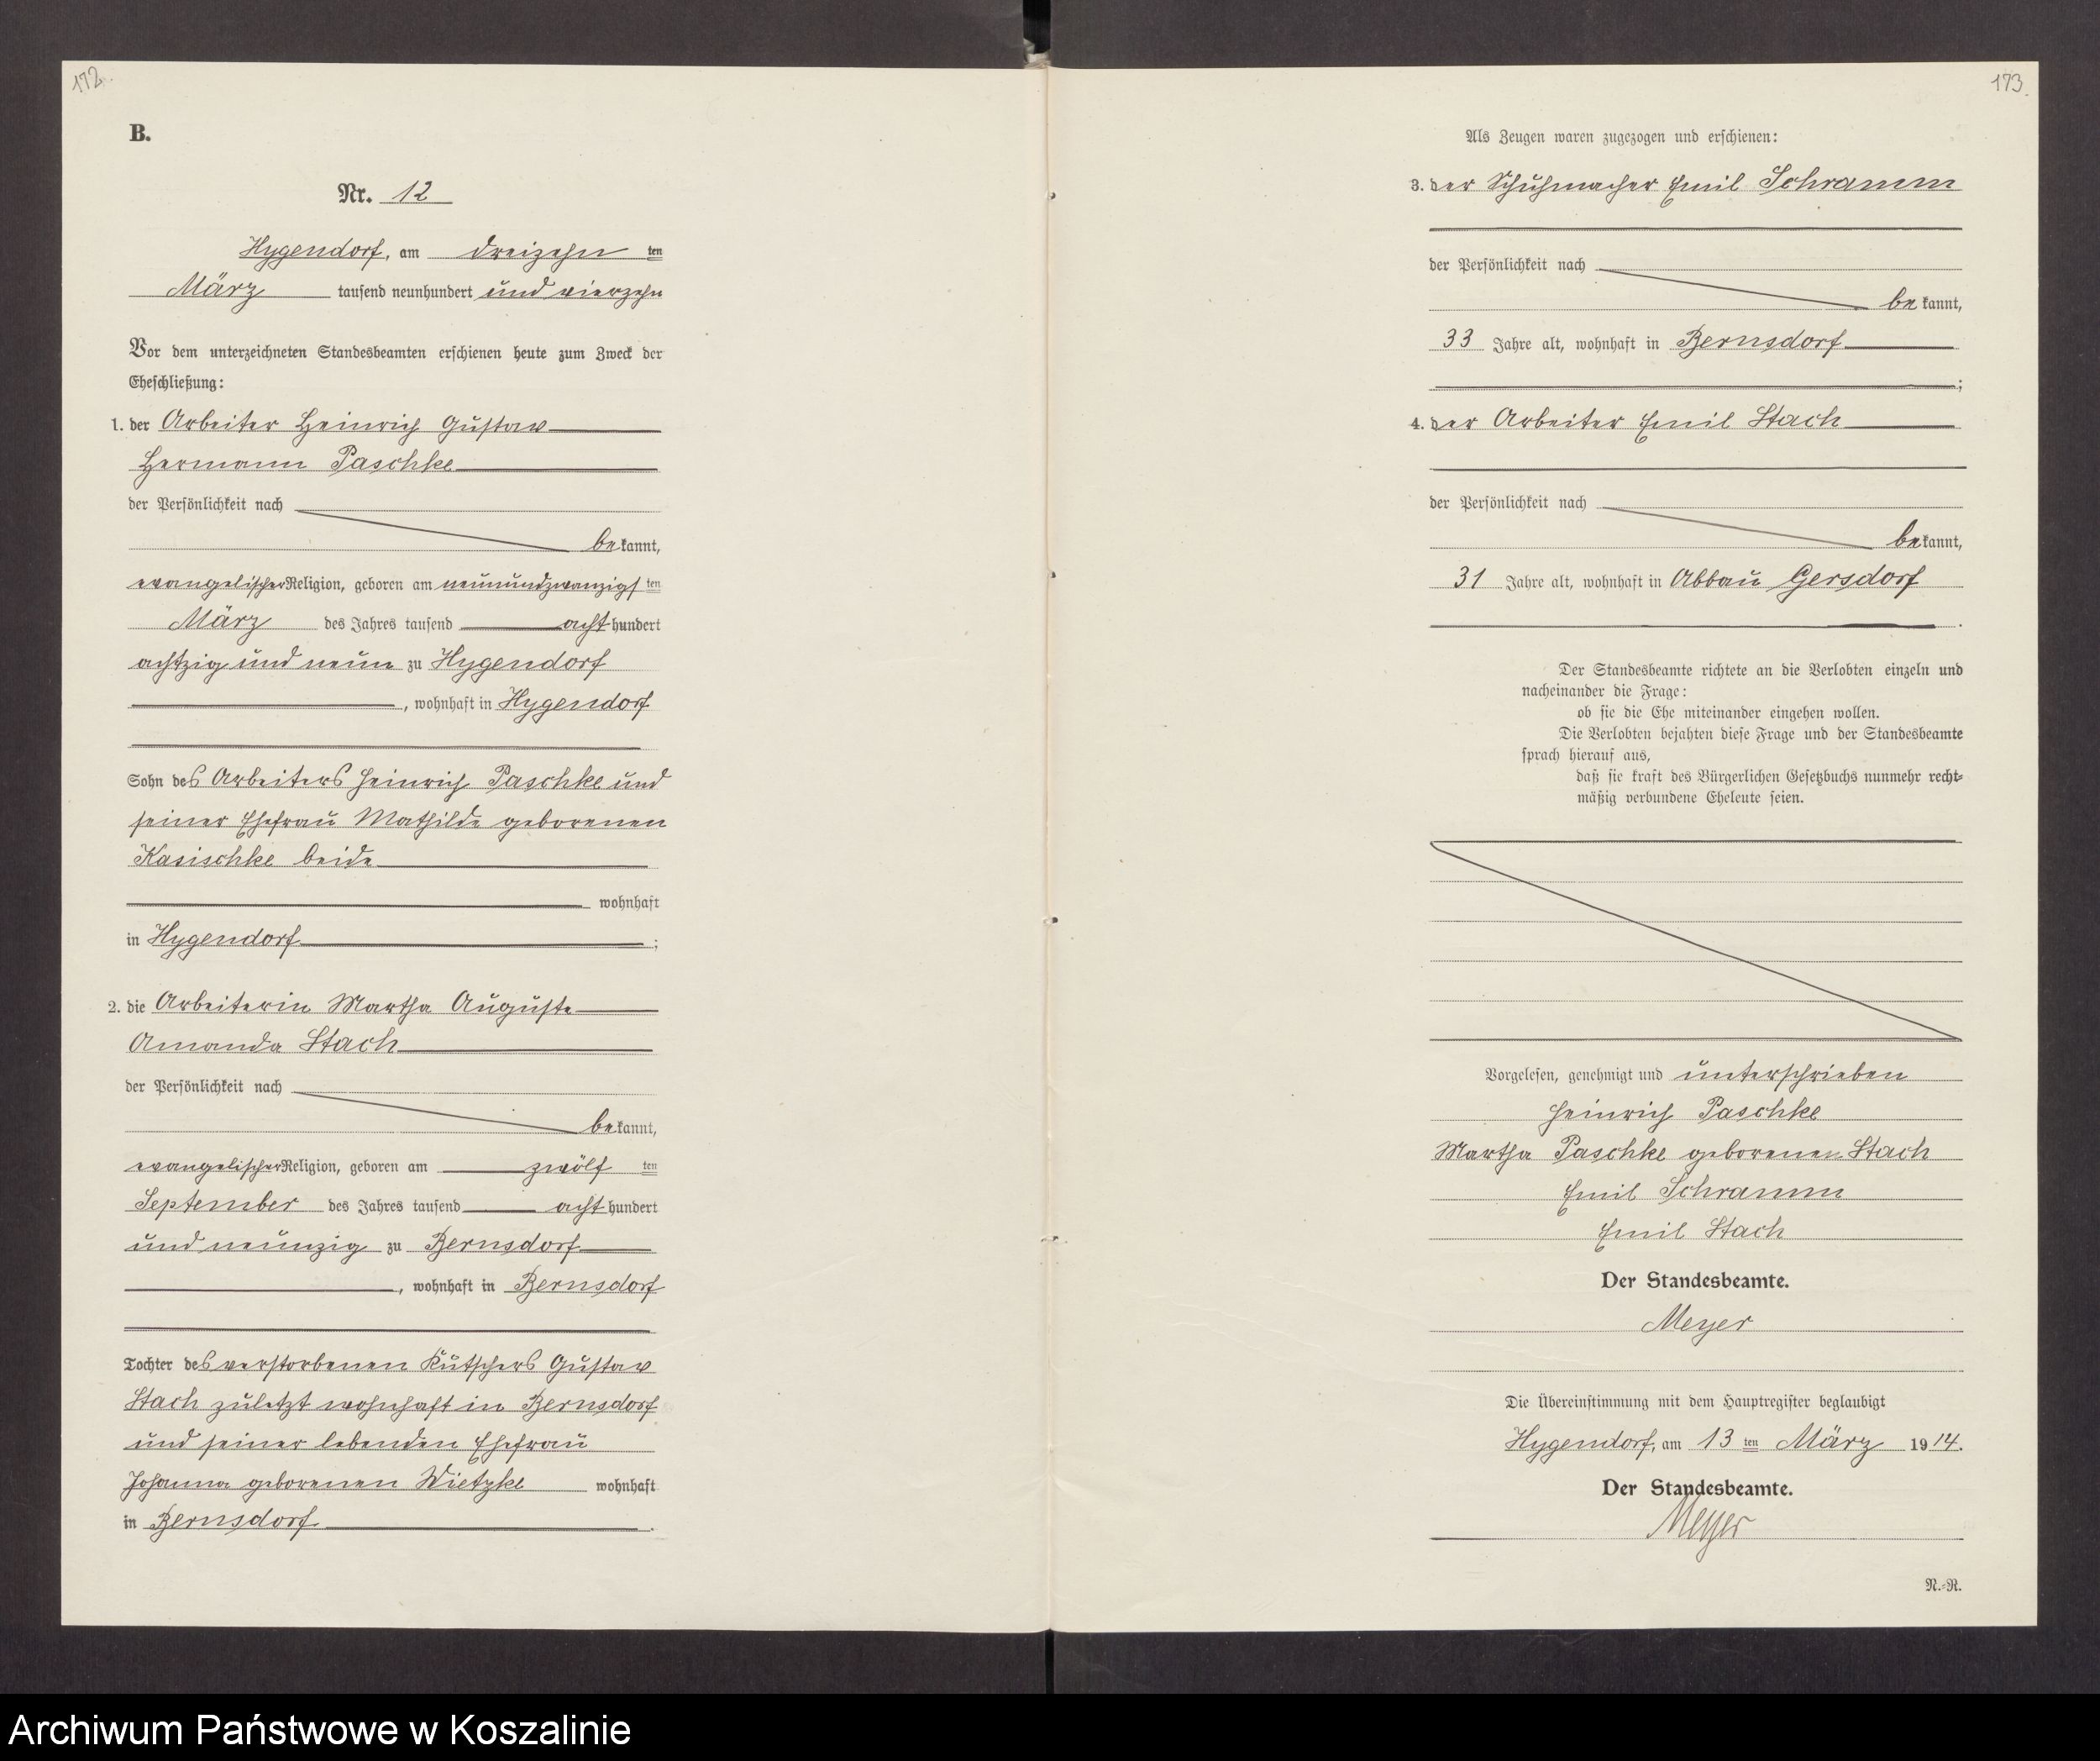 172.
B.
Nr. 12
Hygendorf, am dreizehn ten
März tausend neunhundert und vierzehn
Vor dem unterzeichneten Standesbeamten erschienen heute zum Zweck der
Eheschließung:
1. der Arbeiter Heinrich Gustav
Hermann Paschke
der Persönlichkeit nach
be kannt,
evangelischer Religion, geboren am neunundzwanzigs ten
März des Jahres tausend acht hundert
achtzig und neun zu Hygendorf
, wohnhaft in Hygendorf
Sohn des Arbeiters Heinrich Paschke und
seiner Ehefrau Mathilde geborenen
Kasischke beide
wohnhaft
in Hygendorf ;
2. die Arbeiterin Martha Auguste
Amanda Stach
der Persönlichkeit nach
be kannt,
evangelischer Religion, geboren am zwölf ten
September des Jahres tausend acht hundert
und neunzig zu Bernsdorf
, wohnhaft in Bernsdorf
Tochter des verstorbenen Kutschers Gustav
Stach zuletzt wohnhaft in Bernsdorf
und seiner lebenden Ehefrau
Johanna geborenen Wietzke wohnhaft
in Bernsdorf .
173.
Als Zeugen waren zugezogen und erschienen:
3. der Schuhmacher Emil Schramm
der Persönlichkeit nach
be kannt,
33 Jahre alt, wohnhaft in Bernsdorf
;
4. der Arbeiter Emil Stach
der Persönlichkeit nach
be kannt,
31 Jahre alt, wohnhaft in Abbau Gersdorf
.
Der Standesbeamte richtete an die Verlobten einzeln und
nacheinander die Frage:
ob sie die Ehe miteinander eingehen wollen.
Die Verlobten bejahten diese Frage und der Standesbeamte
sprach hierauf aus,
daß sie kraft des Bürgerlichen Gesetzbuchs nunmehr recht-
mäßig verbundene Eheleute seien.
Vorgelesen, genehmigt und unterschrieben
Heinrich Paschke
Martha Paschke geborenen Stach
Emil Schramm
Emil Stach
Der Standesbeamte.
Meyer
Die Übereinstimmung mit dem Hauptregister beglaubigt
Hygendorf, am 13 ten März 1914.
Der Standesbeamte.
Meyer
N.-R.
Archiwum Państwowe w Koszalinie